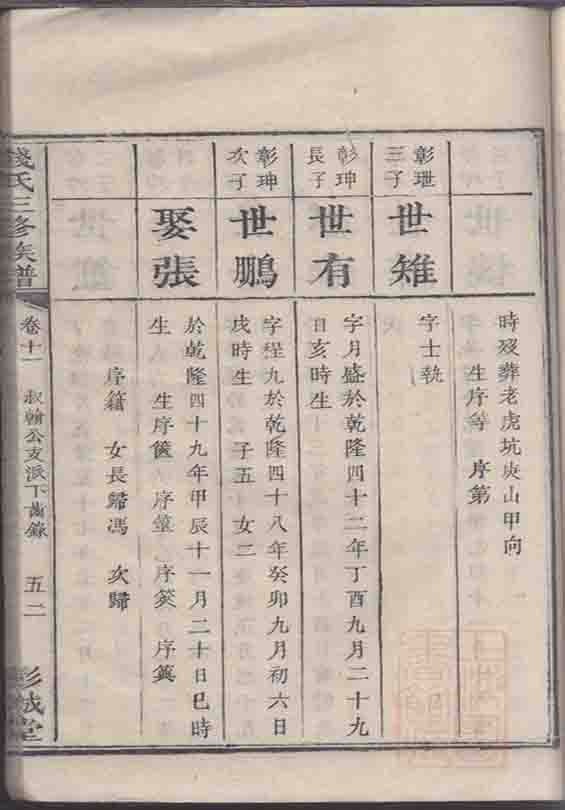 時歿葬老虎坑庚山甲向
生序等 序第
彰玴
三子
世雉
字士執
彰珅
長子
世有
字月盛於乾隆四十二年丁酉九月二十九
日亥時生
彰珅
次子
世鵬
字程九於乾隆四十八年癸卯九月初六日
戌時生 子五 女二
娶張
於乾隆四十九年甲辰十一月二十日巳時
生 生序篋 序篁 序筴 序簨
序籍 女長歸馮 次歸
錢氏三修族譜
卷十一 叔翰公支派下齒錄 五二
彭城堂